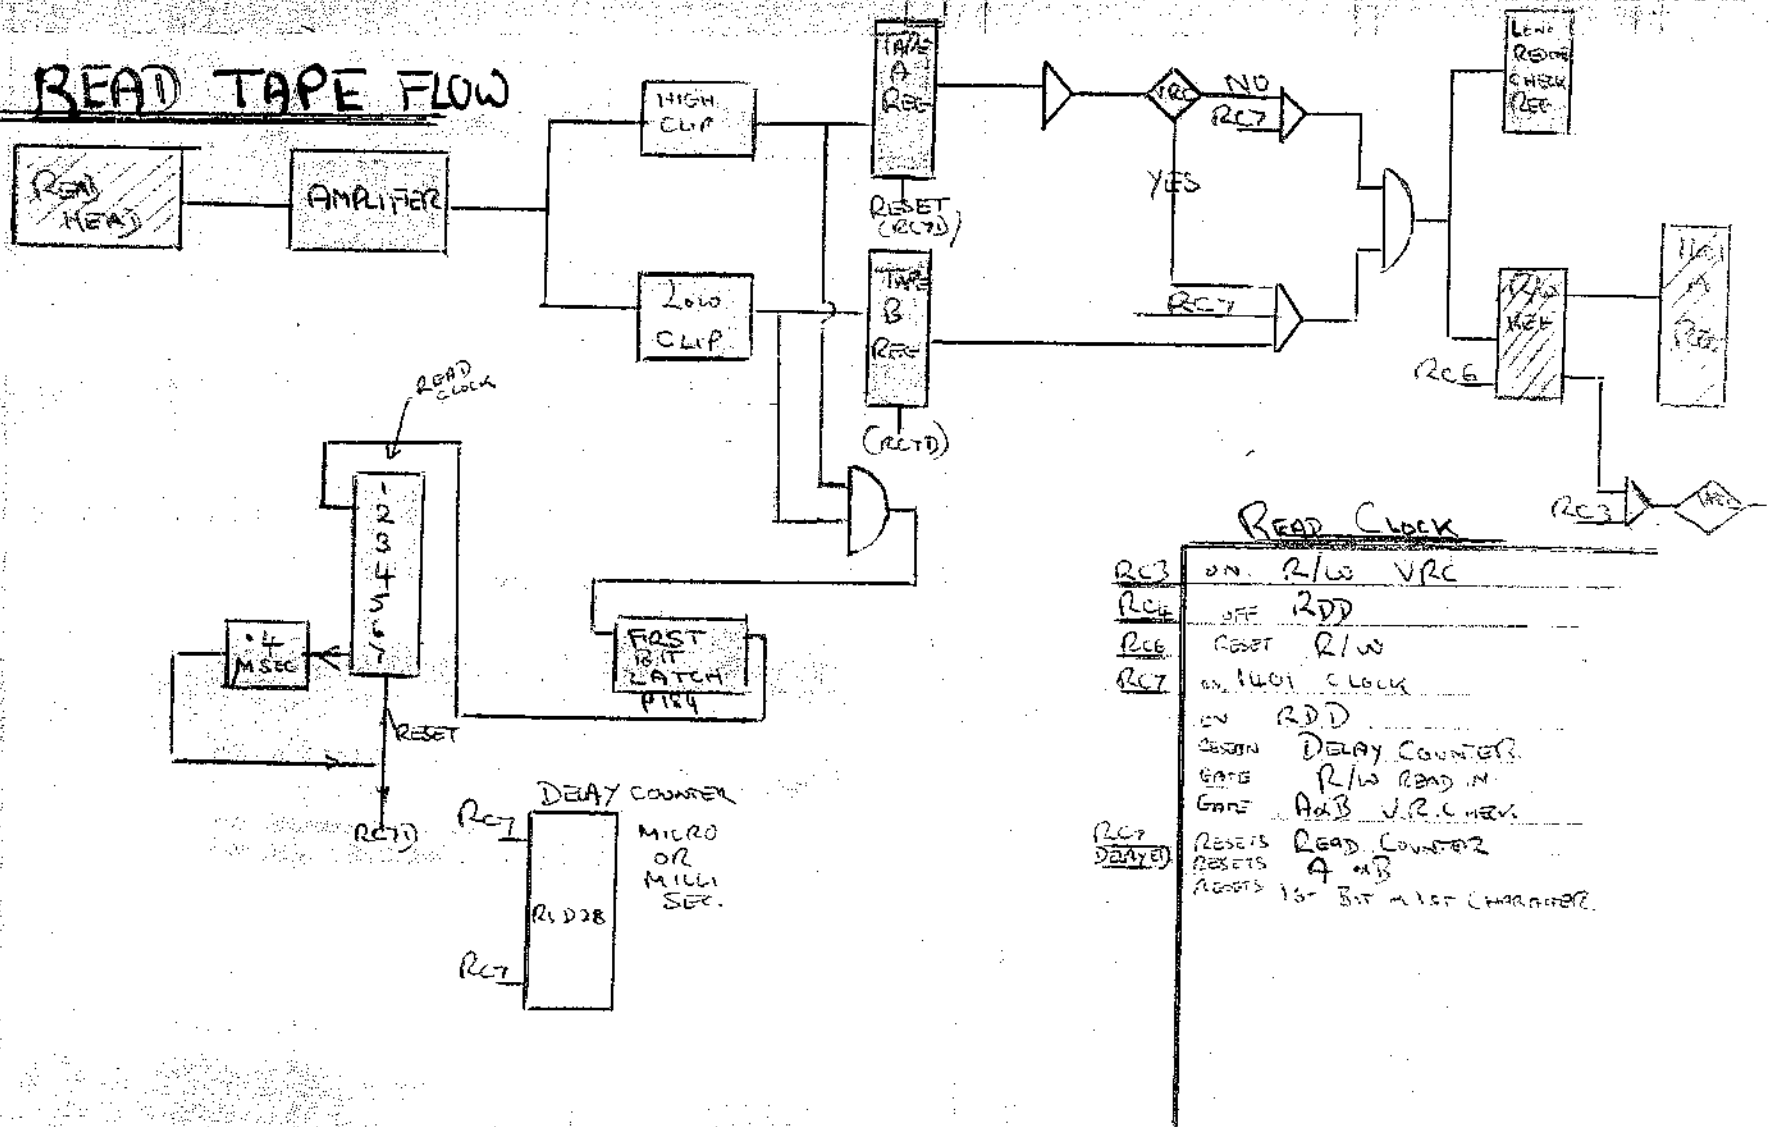 READ TAPE FLOW
READ
HEAD
AMPLIFIER
HIGH
CLIP
LOW
CLIP
TAPE
A
REG
RESET
(RC7D)
TAPE
B
REG
(RC7D)
VRC
NO
RC7
YES
RC7
CHECK
REG
R/W
REG
RC6
A
REG
RC3
READ
CLOCK
1
2
3
4
5
6
7
.4
MSEC
RESET
RC7D
FIRST
BIT
LATCH
P184
DELAY COUNTER
RC7
MICRO
OR
MILLI
SEC.
RC7
READ CLOCK
RC3 ON R/W VRC
RC4 OFF RDD
RC6 RESET R/W
RC7 ON 1401 CLOCK
ON RDD
DELAY COUNTER
GATE R/W READ IN
GATE A+B V.R.CHECK.
RC7
DELAYED
RESETS READ COUNTER
RESETS A B
RESETS 1ST BIT 1ST CHARACTER.